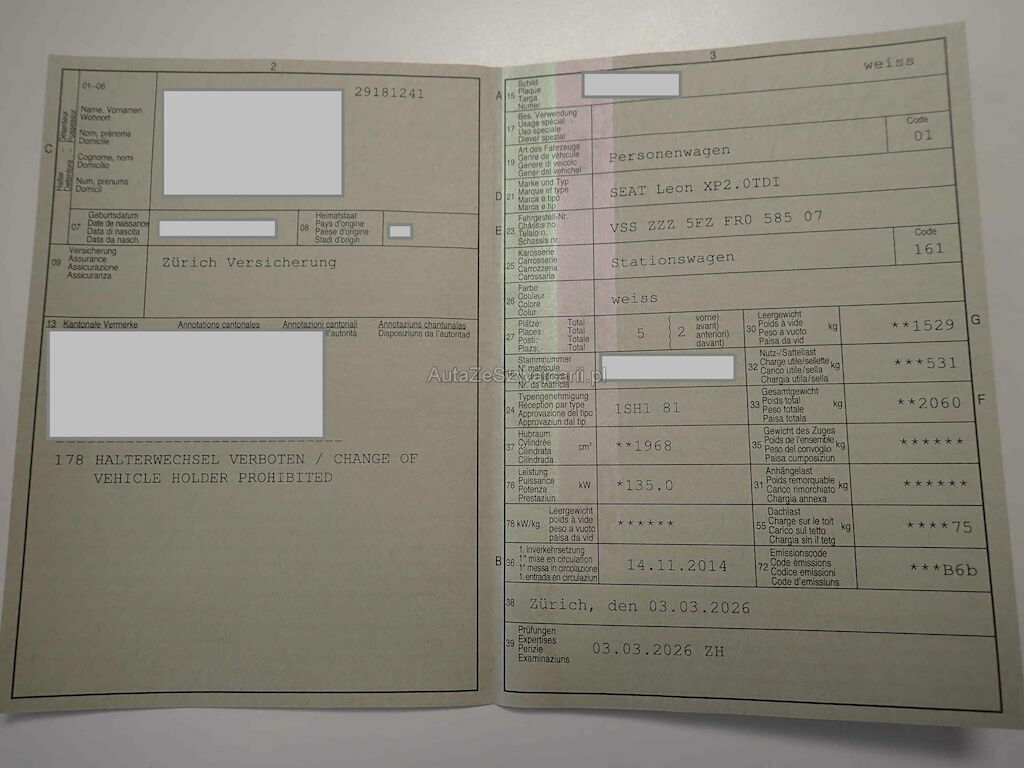 2
01-06
Name, Vornamen
Wohnort
Nom, prénoms
Domicile
Cognome, nomi
Domicilio
Num, prenums
Domicil
C
Halter - Détenteur
Detentore - Possessur
29181241
07
Geburtsdatum
Date de naissance
Data di nascita
Data da nasch.
08
Heimatstaat
Pays d'origine
Paese d'origine
Stadi d'origin
09
Versicherung
Assurance
Assicurazione
Assicuranza
Zürich Versicherung
13 Kantonale Vermerke Annotations cantonales Annotazioni cantonali Annotaziuns chantunalas
l'autorità Disposiziuns da l'autoritad
178 HALTERWECHSEL VERBOTEN / CHANGE OF
VEHICLE HOLDER PROHIBITED
3
A 15
Schild
Plaque
Targa
Numer
weiss
17
Bes. Verwendung
Usage spécial
Uso speciale
Diever spezial
19
Art des Fahrzeugs
Genre de véhicule
Genere di veicolo
Gener dal vehichel
Personenwagen
Code
01
D 21
Marke und Typ
Marque et type
Marca e tipo
Marca e tip
SEAT Leon XP2.0TDI
E 23
Fahrgestell-Nr.
Châssis no
Telaio n.
Schassis nr.
VSS ZZZ 5FZ FR0 585 07
25
Karosserie
Carrosserie
Carrozzeria
Carossaria
Stationswagen
Code
161
26
Farbe
Couleur
Colore
Colur
weiss
27
Plätze: Total
Places: Total
Posti: Totale
Plazs: Total
5 ( 2
vorne)
avant)
anteriori)
davant)
30
Leergewicht
Poids à vide
Peso a vuoto
Paisa da vid
kg
**1529
G
Stammnummer
N° matricule
Nr. da matricla
32
Nutz-/Sattellast
Charge utile/sellette
Carico utile/sella
Chargia utila/sella
kg
***531
24
Typengenehmigung
Réception par type
Approvazione del tipo
Approvaziun dal tip
1SH1 81
33
Gesamtgewicht
Poids total
Peso totale
Paisa totala
kg
**2060
F
37
Hubraum
Cylindrée
Cilindrata
Cilindrada
cm³
**1968
35
Gewicht des Zuges
Poids de l'ensemble
Peso del convoglio
Paisa cumposiziun
kg
******
76
Leistung
Puissance
Potenza
Prestaziun
kW
*135.0
31
Anhängelast
Poids remorquable
Carico rimorchiato
Chargia annexa
kg
******
78 kW/kg
Leergewicht
poids à vide
peso a vuoto
paisa da vid
******
55
Dachlast
Charge sur le toit
Carico sul tetto
Chargia sin il tetg
kg
****75
B 36
1. Inverkehrsetzung
1re mise en circulation
1a messa in circolazione
1. entrada en circulaziun
14.11.2014
72
Emissionscode
Code émissions
Codice emissioni
Code d'emissiuns
***B6b
38 Zürich, den 03.03.2026
39
Prüfungen
Expertises
Perizie
Examinaziuns
03.03.2026 ZH
AutaZeSzwajcarii.pl